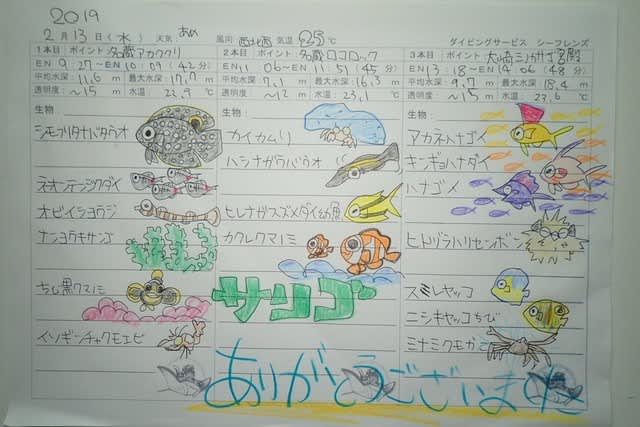 2019
2月13日(水) 天気 あめ 風向 西北西 気温 25℃ ダイビングサービス シーフレンズ
1本目 ポイント 名蔵アカククリ
EN 9:27~EN 10:09 (42分)
平均水深: 11,6 m 最大水深: 17,7 m
透明度: ~15 m 水温: 22,9 ℃
生物:
シモフリタナバタウオ
ネオンテンジクダイ
オビイシヨウジ
ナンヨウキサンゴ
ちび黒クマノミ
イソギンチャクモエビ
2本目 ポイント 名蔵ロコロック
EN 11:06~EN 11:51 (45分)
平均水深: 7,1 m 最大水深: 16,3 m
透明度: ~12 m 水温: 23,1 ℃
生物:
カイカムリ
ハシナガウバウオ
ヒレナガスズメダイ幼魚
カクレクマノミ
サンゴ
3本目 ポイント 大崎ミノカサゴ宮殿
EN 13:18~EN 14:06 (48分)
平均水深: 9,7 m 最大水深: 18,4 m
透明度: ~15 m 水温: 23,6 ℃
生物:
アカネハナゴイ
キンギョハナダイ
ハナゴメ
ヒトヅラハリセンボン
スミレヤッコ
ニシキヤッコちび
ミナミクモガニ
ありがとうございました